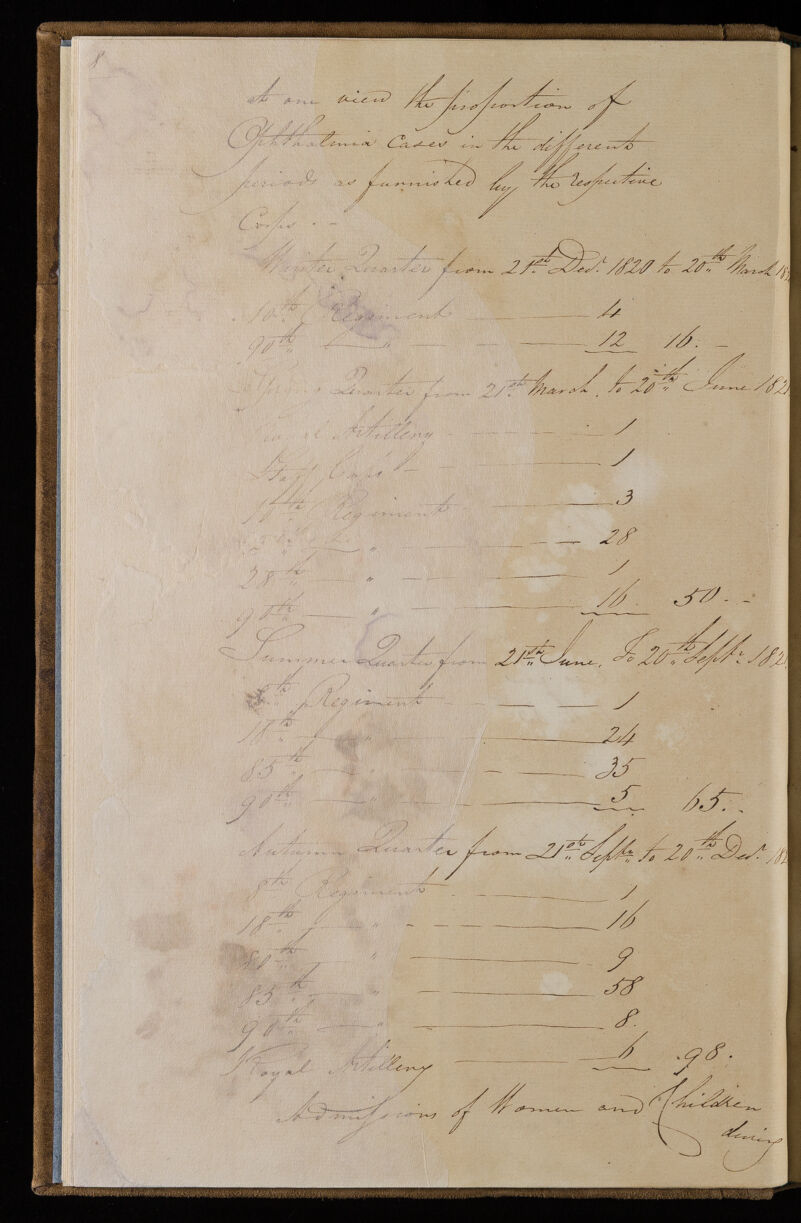 8
at one view the proportion of
Ophthalmia Cases in the different
periods as furnished by the respective
Corps - -
Winter Quarter from 21st Decr. 1820 to 20th March 182
10th Regiment 4
90th " 12 16. -
Spring Quarter from 21st March, to 20th June 182
Royal Artillery - 1
Staff Corps - 1
18th Regiment 3
" 28
28th " 1
90th " 16 50. -
Summer Quarter from 21st June, To 20th Septr 182
8th Regiment 1
18th " 24
85th " 35
90th " 5 65. -
Autumn Quarter from 21st Septr to 20th Decr. 182
8th Regiment 1
18th " 16
80th " 9
85th " 58
90th " 8.
Royal Artillery 6 98.
Admissions of Women and Children
during